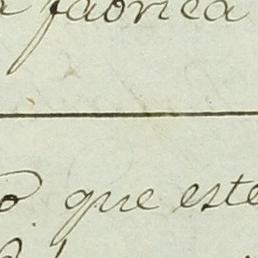 fabrica
que este